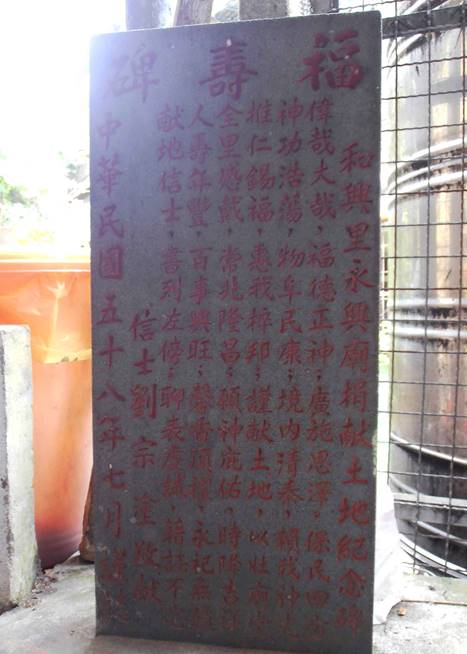 福壽碑
和興里永興廟捐献土地紀念碑
偉哉大哉，福德正神；廣施恩澤，保民四方
神功浩蕩，物阜民康；境内清泰，賴我神光
推仁錫福，惠我梓邦；謹献土地，以壯廟
全里感戴，常兆隆昌；願神庇佑，時降吉祥
人壽年豐，百事興旺；馨香頂禮，永祀無
献地信士，書列左傍；聊表虔誠，藉誌不
信士劉宗 敬献
中華民國五十八年七月